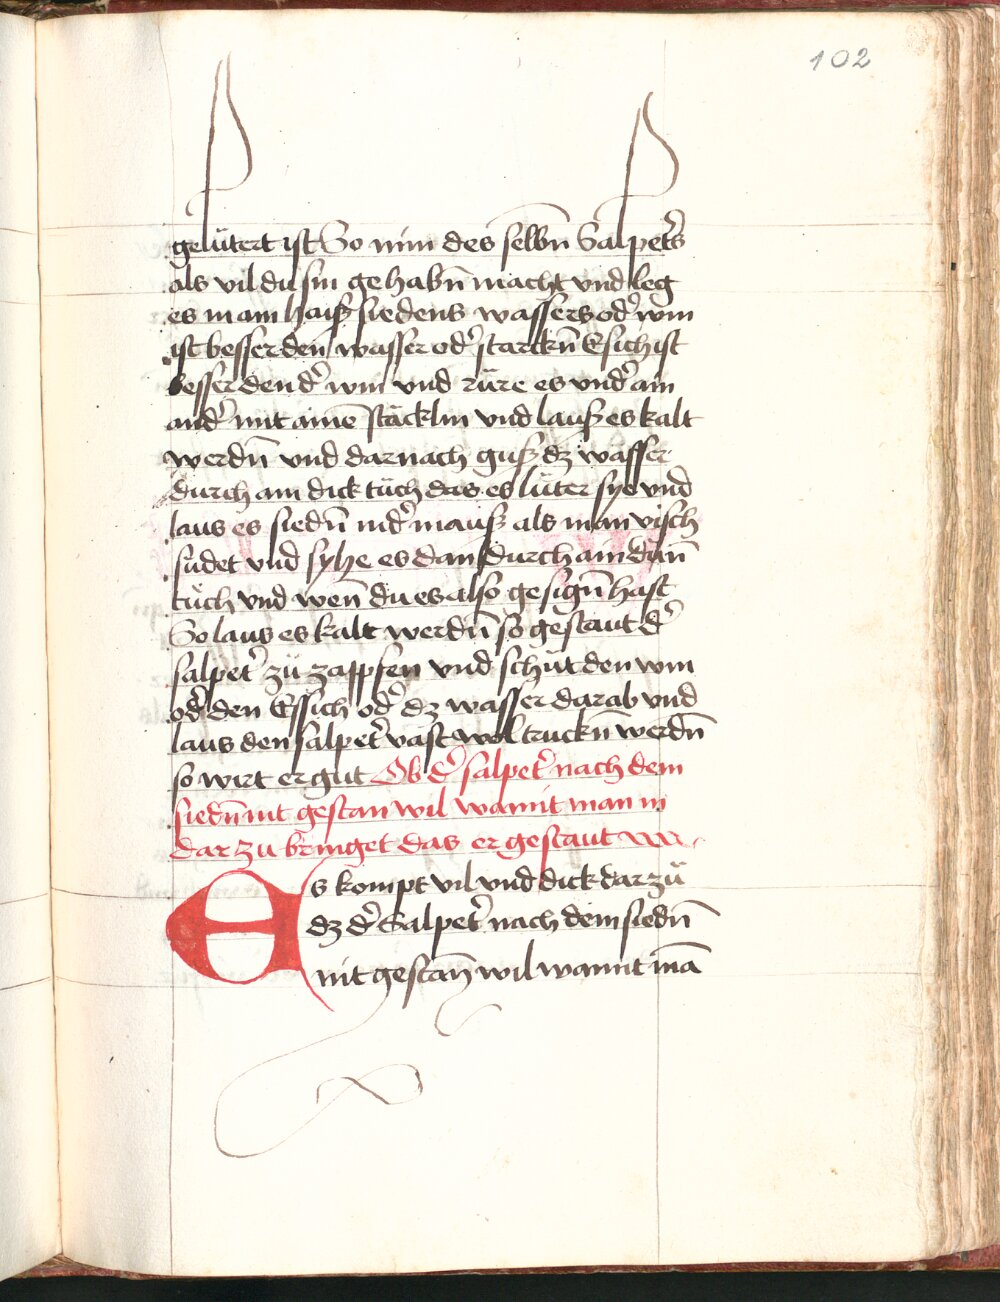 102
gelütert ist So nim des selbñ Salpet's
als vil du sin gehabñ macht vnd leg
es in ain haiß siedens wassers od' win
ist besser den̄ wasser od' starckñ Esich ist
besser den d' win vnd rüre es vnd' ain
and' mit ainē stäcklin vnd lauß es kalt
werdñ vnd darnach guß dz wasser
durch ain dick tüch das es lüter sye vnd
laus es siedñ in d' mauß als man visch
südet vnd syhe es dan durch ain dün̄
tüch vnd wen̄ du es also gesigñ hast
So laus es kalt werdñ so gestaut d'
salpet' zü zapffen vnd schüt den win
od' den Essich od' dz wasser darab vnd
laus den salpet' vast wol truckñ werdñ
so wirt er güt Ob d' salpet' nach dem
siedñ nit gestan wil wamit man in
dar zu bringet das er gestaut
Es kompt vil vnd dick dar zü
dz d' Salpet' nach dem siedñ
nit gestan̄ wil wamit mā